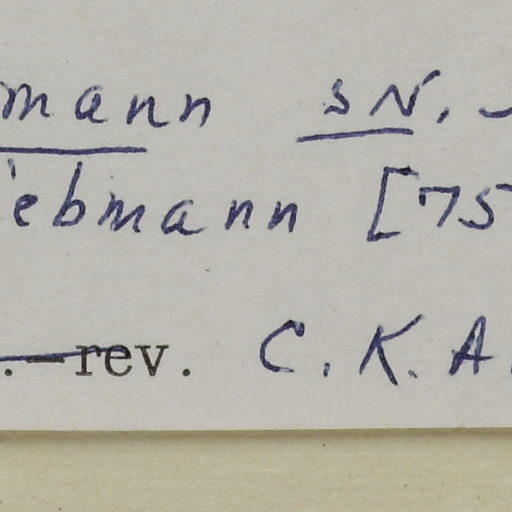 mann sN.
iebmann [75
.—rev. C. K. A.